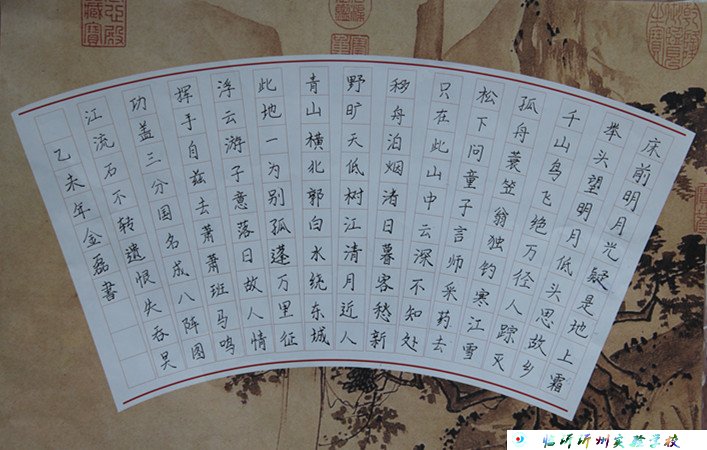 床前明月光疑是地上霜
举头望明月低头思故乡
千山鸟飞绝万径人踪灭
孤舟蓑笠翁独钓寒江雪
松下问童子言师采药去
只在此山中云深不知处
移舟泊烟渚日暮客愁新
野旷天低树江清月近人
青山横北郭白水绕东城
此地一为别孤蓬万里征
浮云游子意落日故人情
挥手自兹去萧萧班马鸣
功盖三分国名成八阵图
江流石不转遗恨失吞吴
乙未年金磊书
临沂沂州实验学校